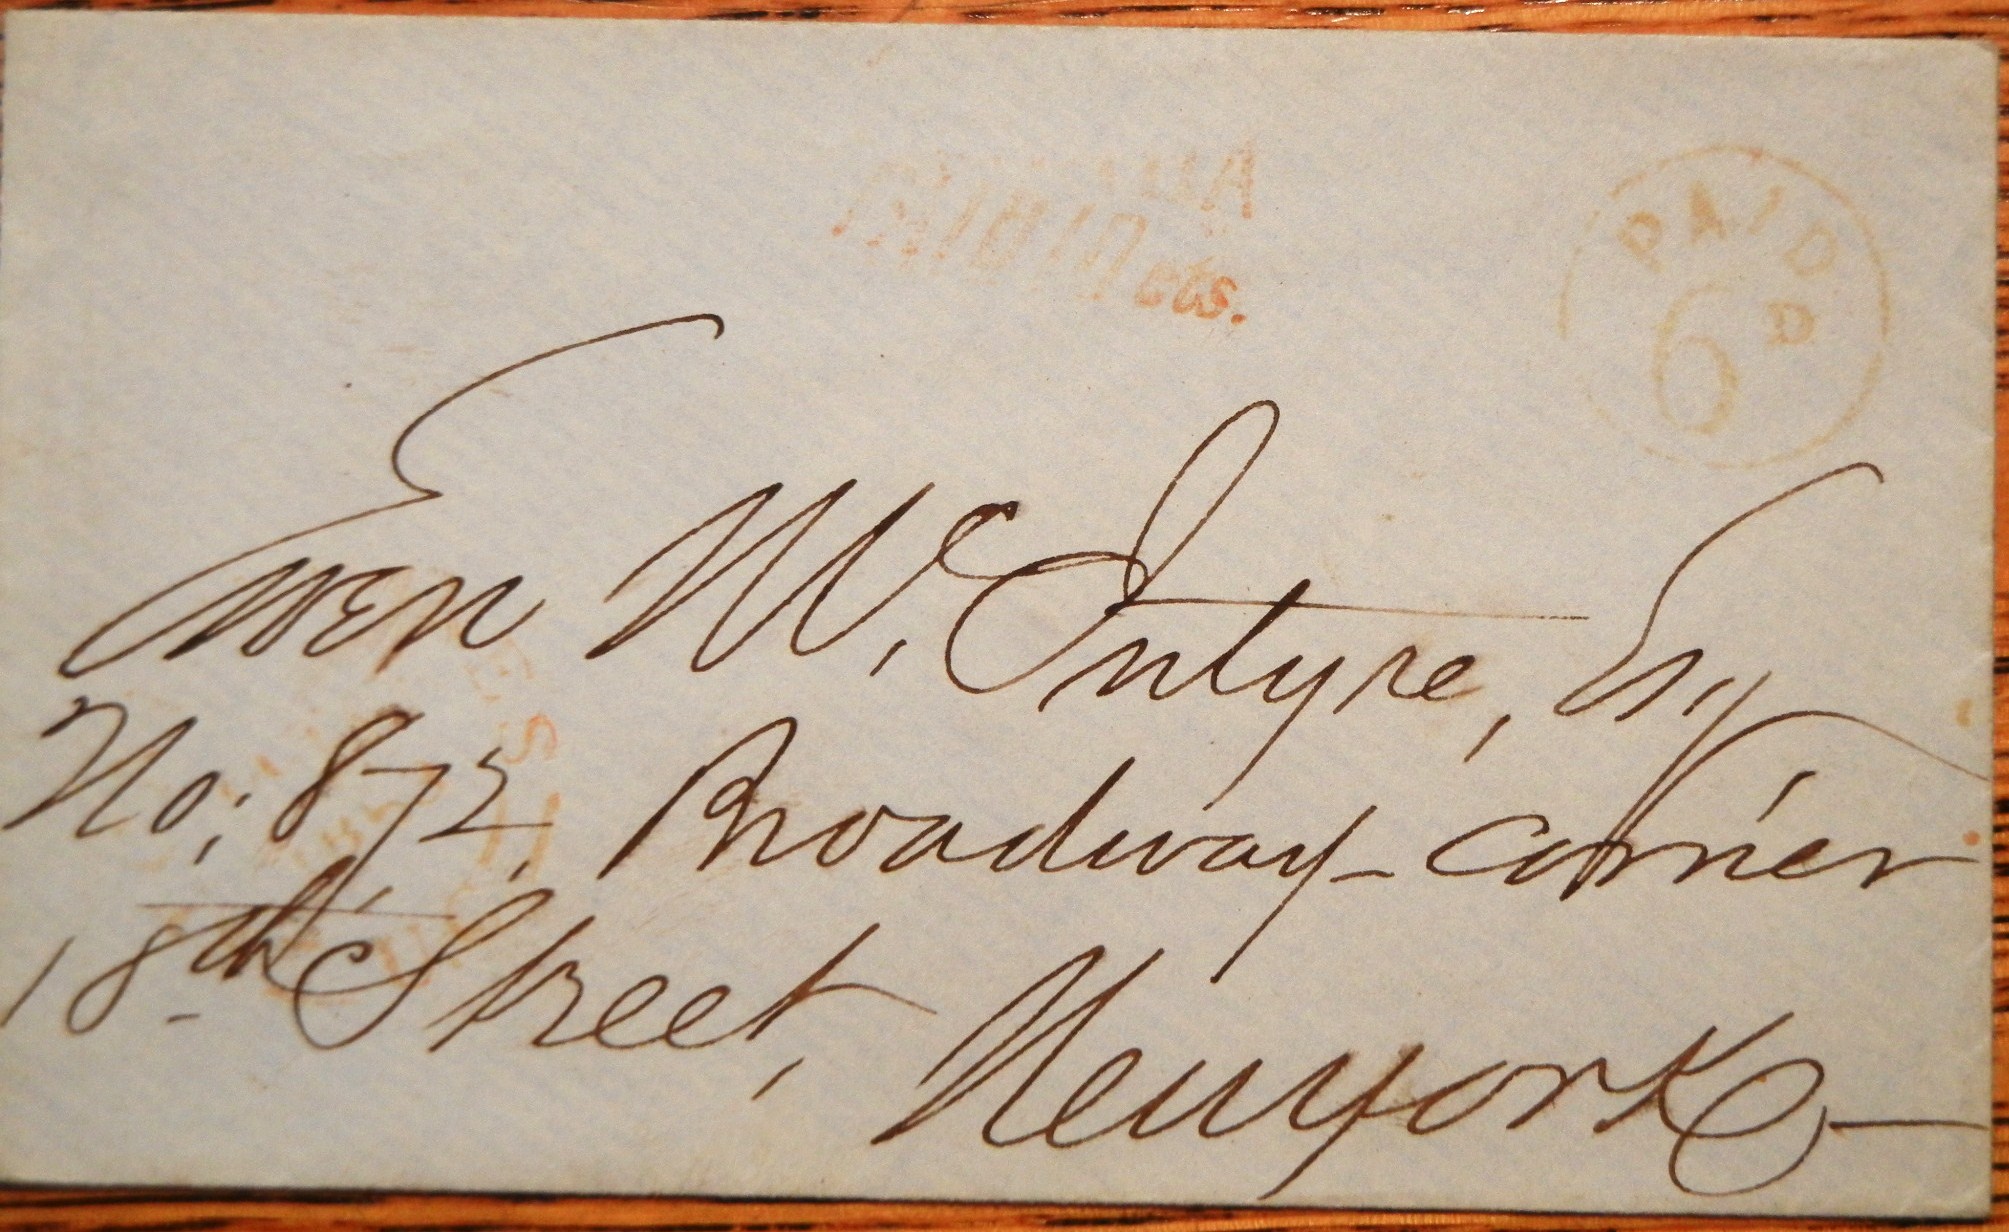 PAID
6 D
cts.
Ewen Mc. Intyre, Esq
No; 872, Broadway - corner
18th Street, New york